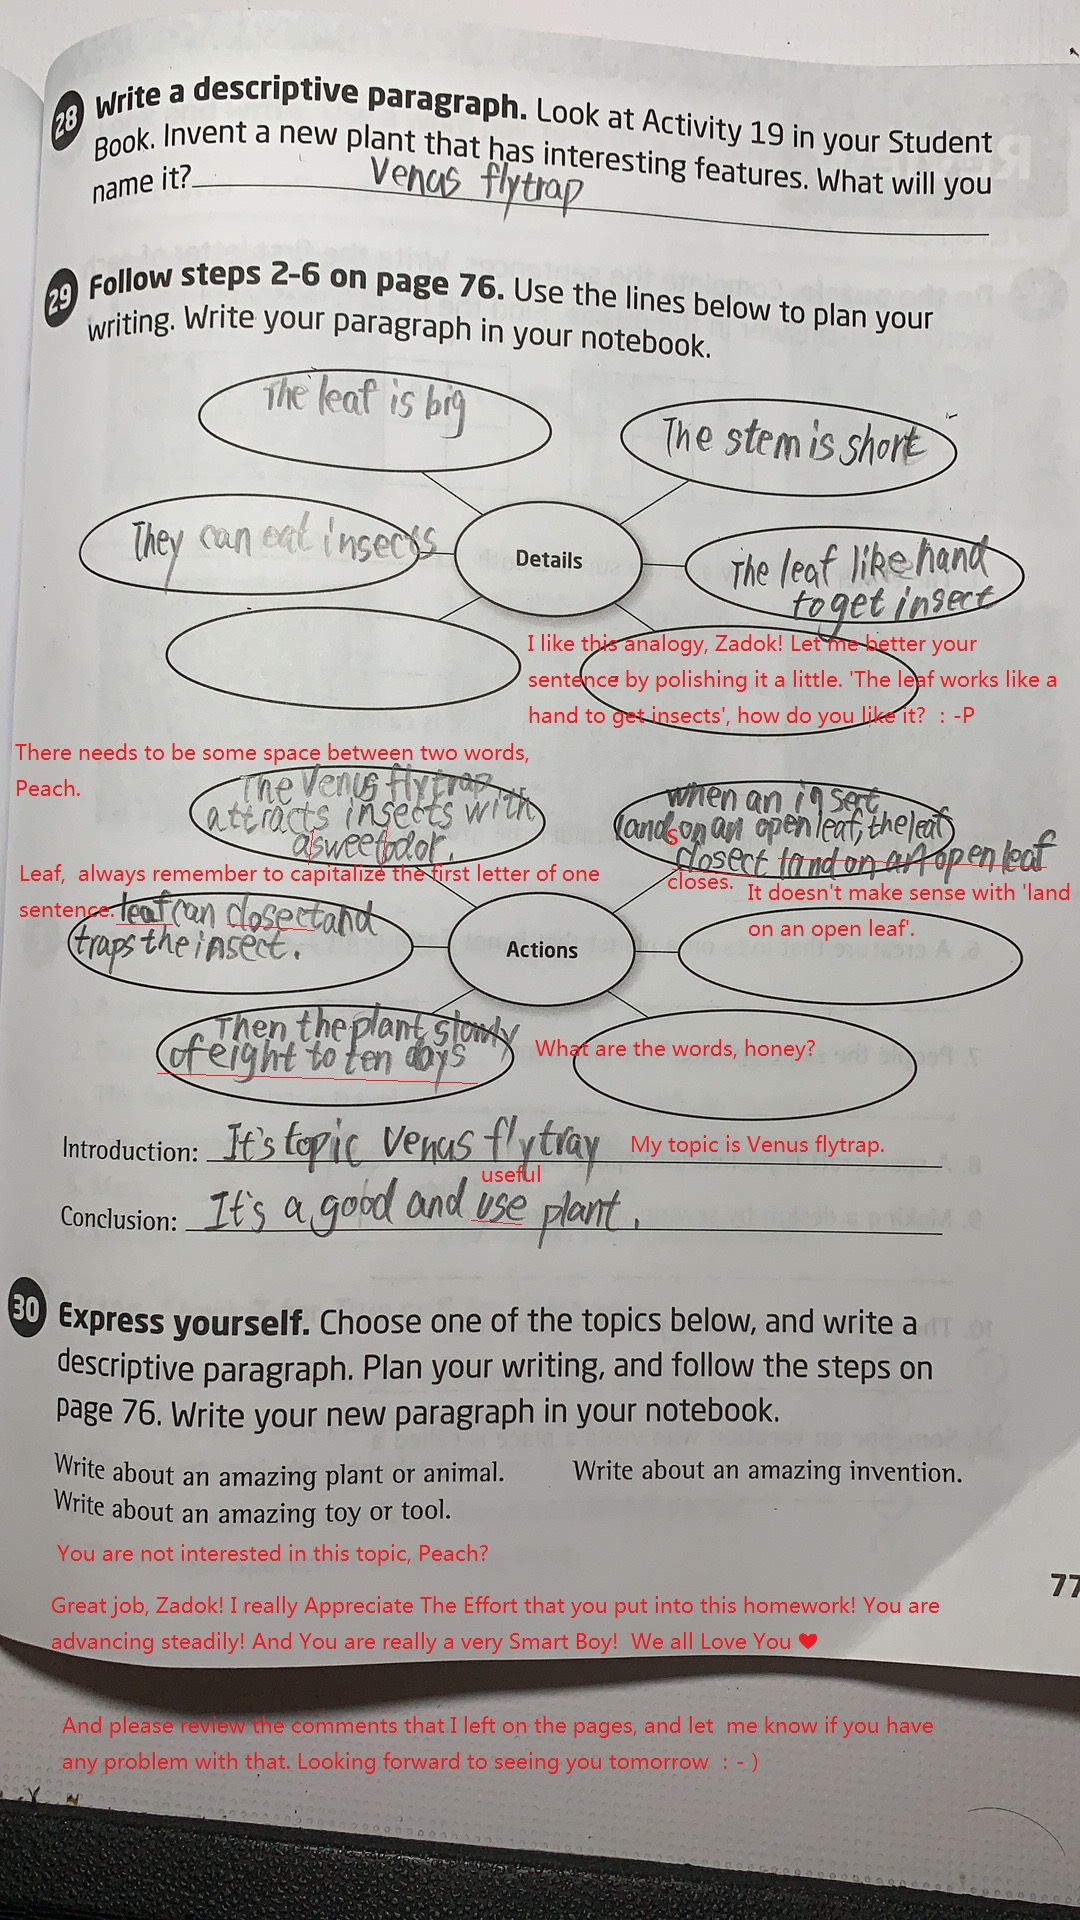 28 Write a descriptive paragraph. Look at Activity 19 in your Student
Book. Invent a new plant that has interesting features. What will you
name it? Venus flytrap
29 Follow steps 2-6 on page 76. Use the lines below to plan your
writing. Write your paragraph in your notebook.
The leaf is big
The stem is short
They can eat insects
Details
The leaf like hand
to get insect
I like this analogy, Zadok! Let me better your
sentence by polishing it a little. 'The leaf works like a
hand to get insects', how do you like it? : -P
There needs to be some space between two words,
Peach.
The Venus flytrap
attracts insects with
a sweet odor.
when an insect
lands on an open leaf, the leaf
closect land on an open leaf
closes. It doesn't make sense with 'land
on an open leaf'.
Leaf, always remember to capitalize the first letter of one
sentence.
leaf can closect and
traps the insect.
Actions
Then the plant slowly
of eight to ten days
What are the words, honey?
Introduction: It's topic Venus flytray My topic is Venus flytrap.
useful
Conclusion: It's a good and use plant.
30 Express yourself. Choose one of the topics below, and write a
descriptive paragraph. Plan your writing, and follow the steps on
page 76. Write your new paragraph in your notebook.
Write about an amazing plant or animal. Write about an amazing invention.
Write about an amazing toy or tool.
You are not interested in this topic, Peach?
77
Great job, Zadok! I really Appreciate The Effort that you put into this homework! You are
advancing steadily! And You are really a very Smart Boy! We all Love You ♥
And please review the comments that I left on the pages, and let me know if you have
any problem with that. Looking forward to seeing you tomorrow : - )